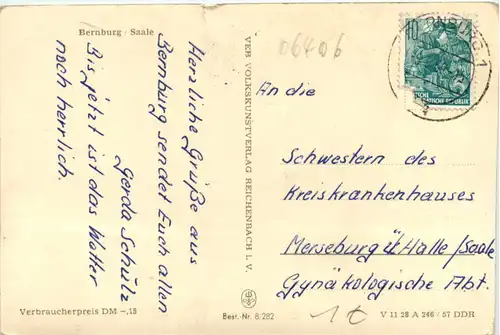 Bernburg / Saale
Herzliche Grüße aus
Bernburg sendet Euch allen
Gerda Schulz
Bis jetzt ist das Wetter
noch herrlich.
Verbraucherpreis DM –,15
VEB VOLKSKUNSTVERLAG REICHENBACH I. V.
Best.-Nr. 8/282
06406
10
DEUTSCHE
DEMOKRATISCHE REPUBLIK
An die
Schwestern des
Kreiskrankenhauses
Merseburg ü. Halle/Saale
Gynäkologische Abt.
1€
V 11 28 A 246 / 57 DDR